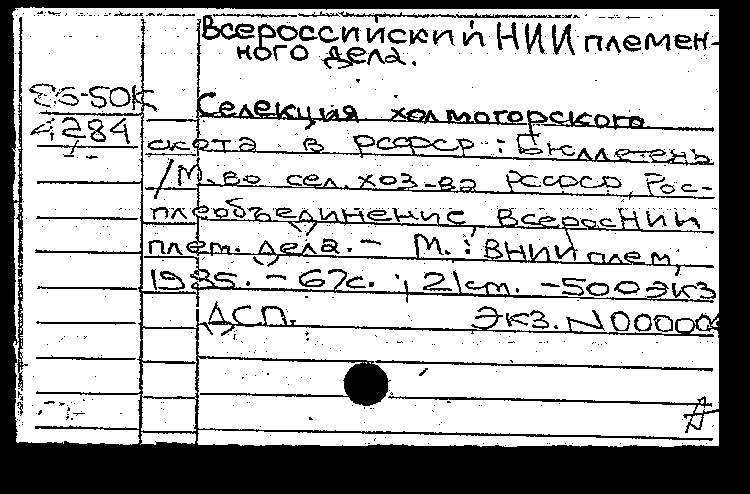 Всероссийский НИИ племен-
ного дела.
86-50К
4284
Селекция холмогорского
скота в РСФСР : Бюллетень
/М-во сел. хоз-ва РСФСР, Рос-
племобъединение, ВсеросНИИ
плем. дела. - М. : ВНИИплем,
1985. - 67с. ; 21см. - 500экз
ДСП. Экз. N00000